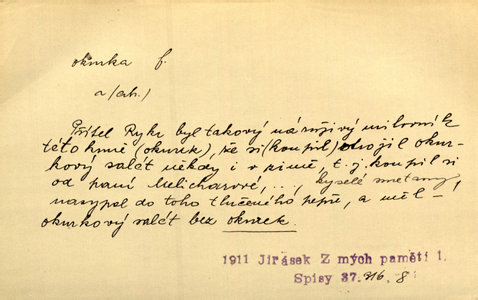 okurka f.
a (arch.)
Přítel Rykr byl takový náruživý milovník
této hmě (okurek), že si (koupil) strojil okur-
kový salát někdy i v zimě, t. j. koupil si
od paní Melicharové, .., kyselé smetany,
nasypal do toho tlučeného pepře, a měl -
okurkový salát bez okurek.
1911 Jirásek Z mých pamětí 1.
Spisy 37. 316, 8